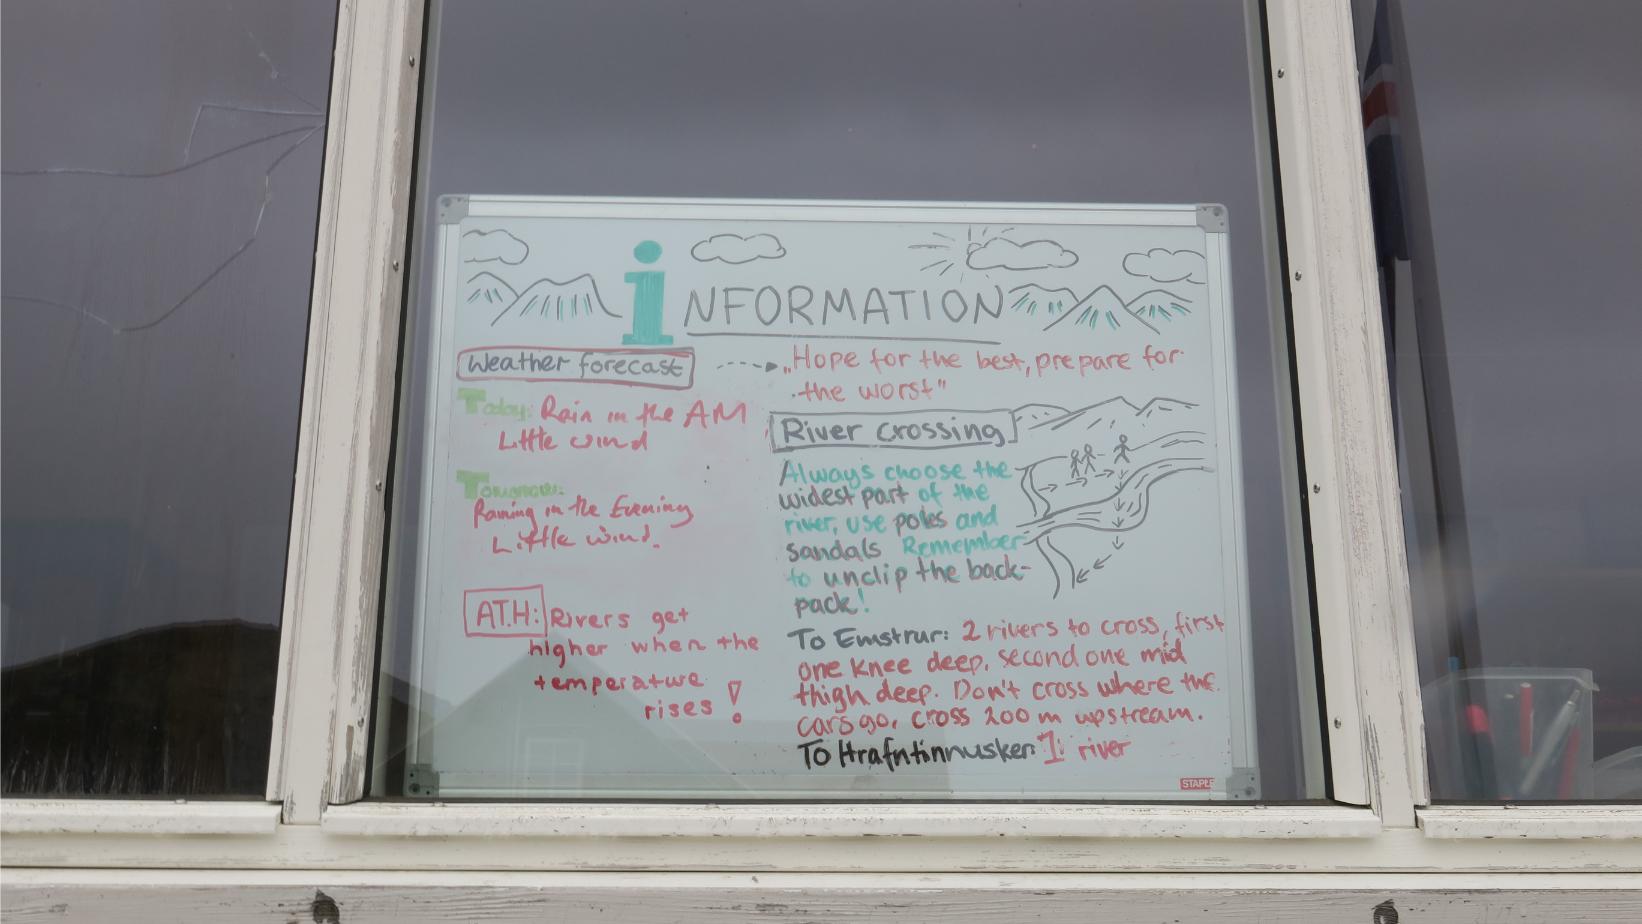 iNFORMATION
Weather forecast
Today: Rain in the AM
Little wind
Tomorrow:
Raining in the Evening
Little wind.
ATH: Rivers get
higher when the
temperature
rises!
„Hope for the best, prepare for
the worst"
River crossing
Always choose the
widest part of the
river, use poles and
sandals Remember
to unclip the back-
pack!
To Emstrur: 2 rivers to cross, first
one knee deep, second one mid
thigh deep. Don't cross where the
cars go, cross 200 m upstream.
To Hrafntinnusker: 1 river
STAPLES